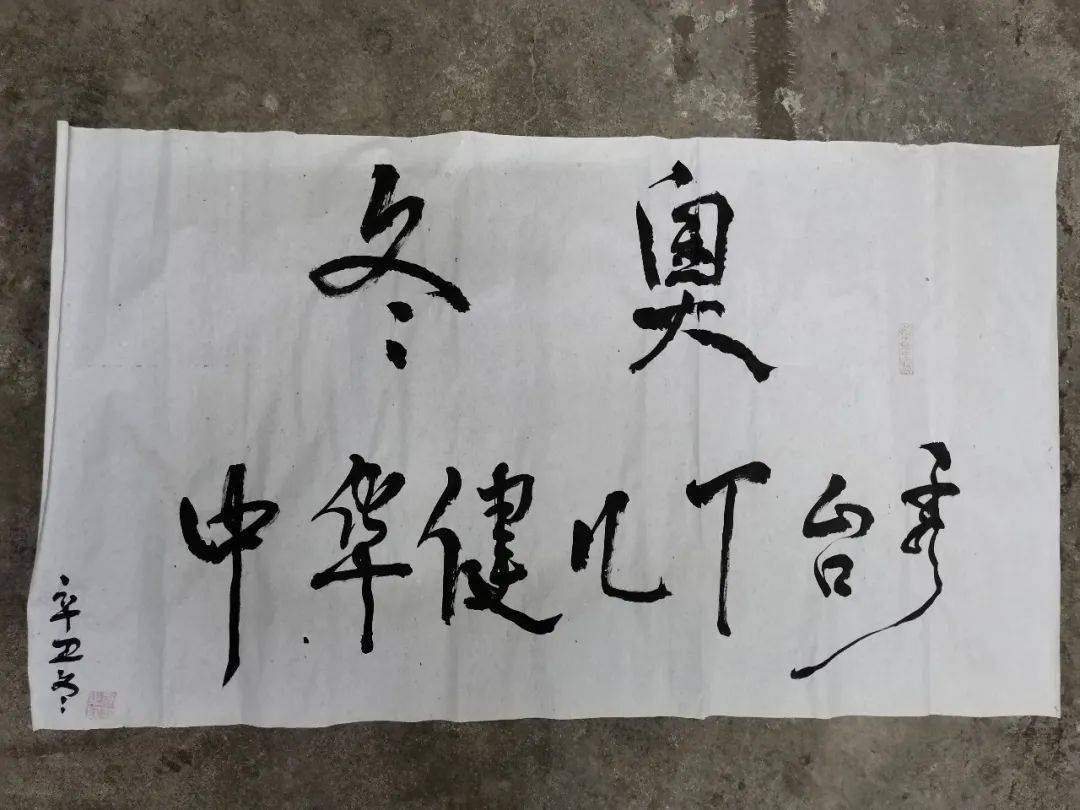 冬奥
中华健儿T台秀
辛丑冬